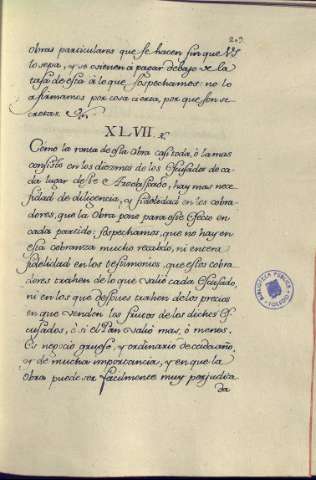 209
obras particulares que se hacen sin que V.S.
lo sepa, y se vienen à pagar debajo de la
tasa de esta à lo que sospechamos: no lo
afirmamos por cosa cierta, por que son se
cretas.
XLVII.
Como la renta de esta Obra casi toda, ò la mas
consiste en los diezmos de los Escusados de ca
da lugar de este Arzobispado, hay mas nece
sidad de diligencia, y fidelidad en los cobra
dores, que la Obra pone para este efecto en
cada partido; sospechamos, que no hay en
esta cobranza mucho recabdo, ni entera
fidelidad en los testimonios, que estos cobra
dores trahen de lo que valiò cada Escusado,
ni en los que despues trahen de los precios
en que venden los frutos de los dichos Es
cusados, ò si el Pan valiò mas, ò menos.
Es negocio grueso, y ordinario de cada año,
y de mucha importancia, y en que la
Obra puede ser facilmente muy perjudica
da
BIBLIOTECA PUBLICA
TOLEDO